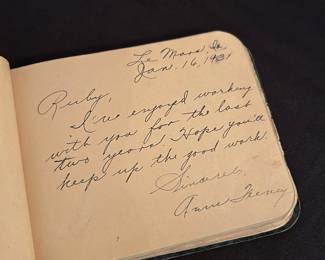 Le Mars, Ia
Jan. 16, 1931
Ruby,
I've enjoyed working
with you for the last
two years. Hope you'll
keep up the good work.
Sincerely,
Anne Feeney